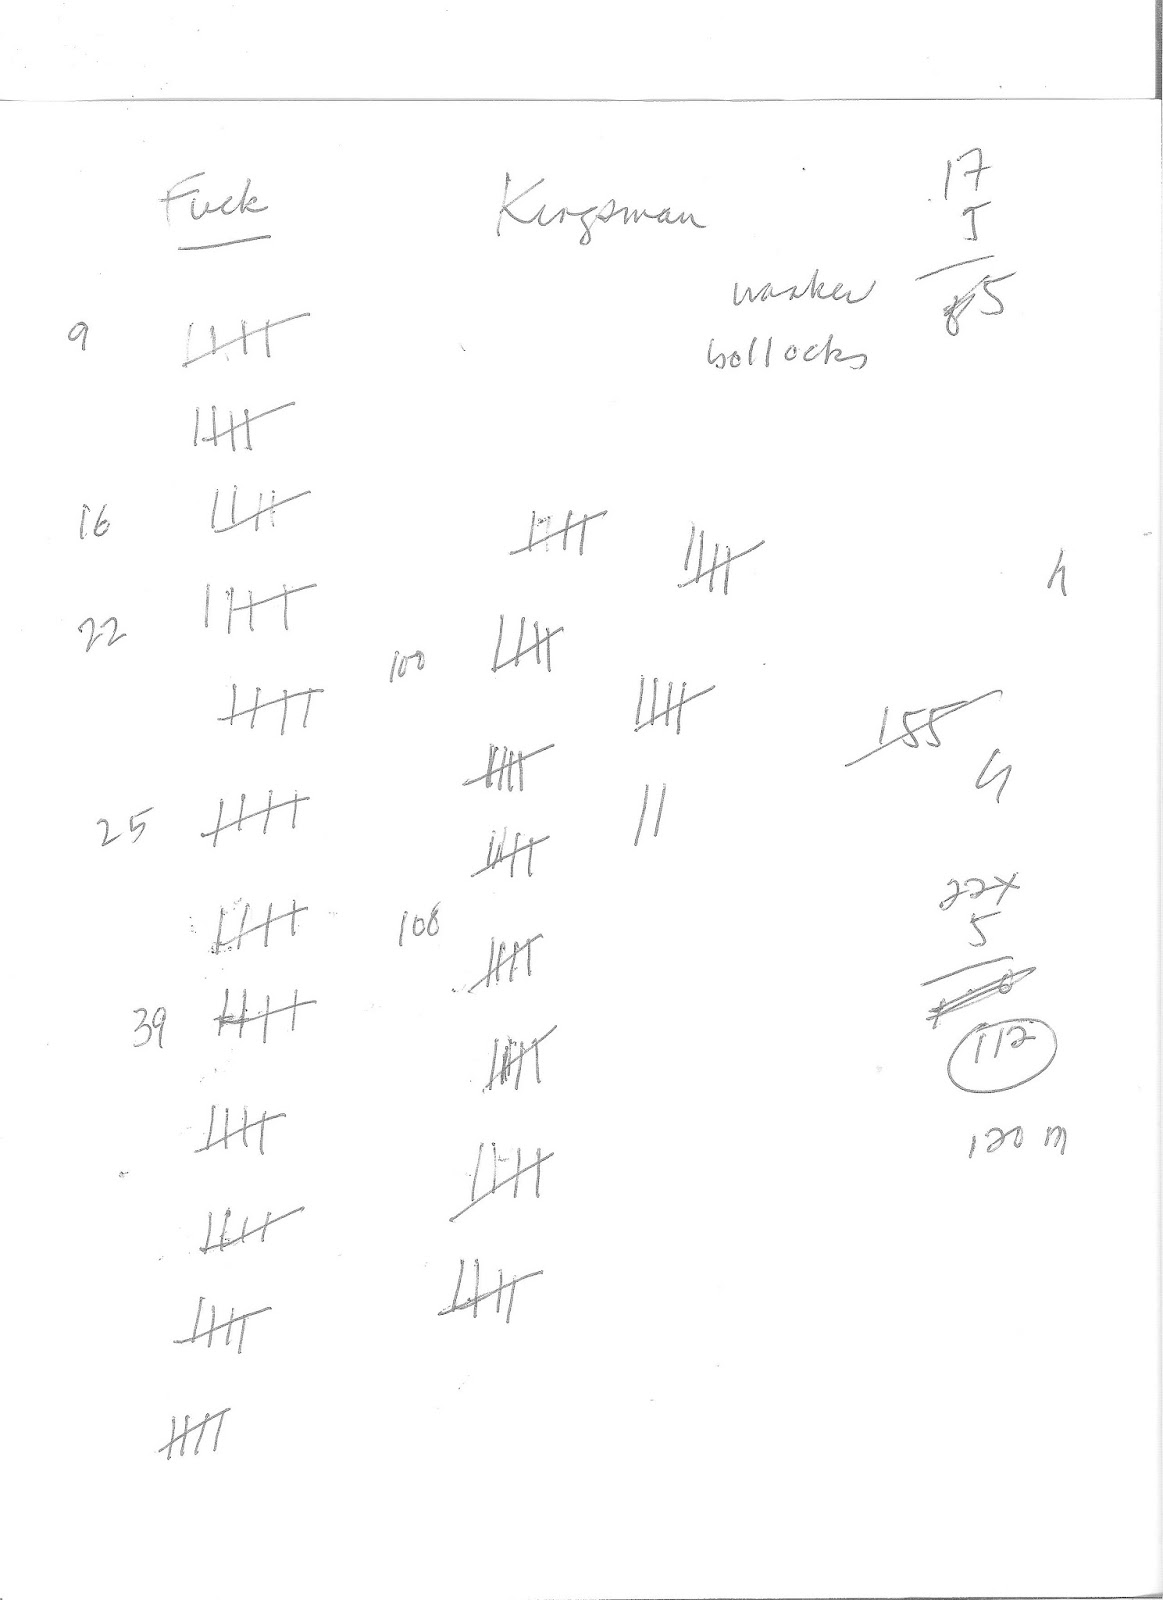 Fuck
Kingsman
17
5
85
wanker
bollocks
9
16
22
100
25
155
108
39
22x
5
112
120 m